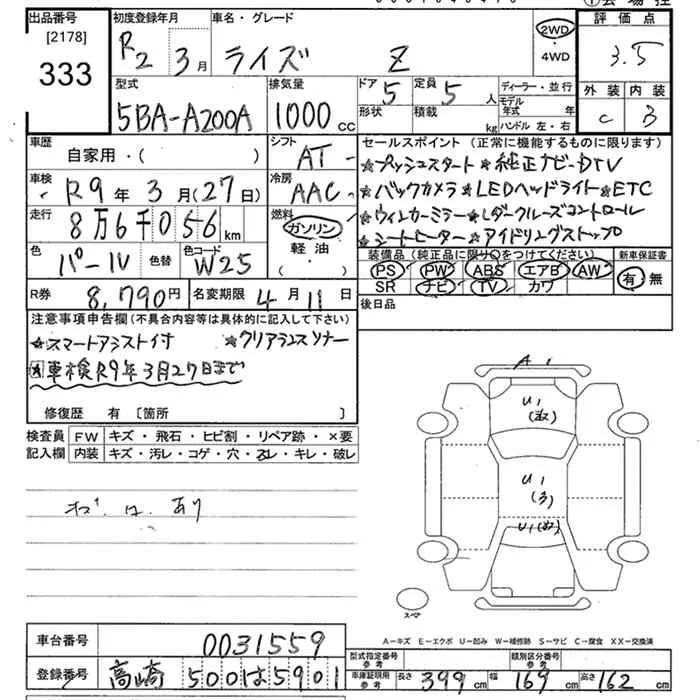 出品番号
[2178]
333
初度登録年月
R2 3月
車名・グレード
ライズ Z
2WD
・
4WD
評価点
3.5
外装 内装
C 3
型式
5BA-A200A
排気量
1000 cc
ドア 5
形状
定員 5 人
積載 kg
ディーラー・並行
モデル年式 年
ハンドル 左・右
車歴
自家用・( )
シフト
AT
車検
R9年3月(27日)
冷房
AAC
走行
8万6千056 km
燃料
ガソリン
軽油
・( )
色
パール
色替
色コード
W25
セールスポイント (正常に機能するものに限ります)
★プッシュスタート★純正ナビ・DTV
★バックカメラ★LEDヘッドライト★ETC
★ウィンカーミラー★レダークルーズコントロール
★シートヒーター★アイドリングストップ
装備品 (純正品に限り○をつけてください)
PS PW ABS エアB AW
SR ナビ TV カワ
新車保証書
有・無
R券
8,790円
名変期限 4月11日
後日品
注意事項申告欄(不具合内容等は具体的に記入して下さい)
★スマートアシスト付 ★クリアランスソナー
★車検R9年3月27日まで
修復歴 有 [箇所 ]
検査員 FW キズ・飛石・ヒビ割・リペア跡・×要
記入欄 内装 キズ・汚レ・コゲ・穴・スレ・キレ・破レ
あり
A1
U1
U1
U1
スペア
A-キズ E-エクボ U-凹み W-補修跡 S-サビ C-腐食 XX-交換済
車台番号 0031559
登録番号 高崎 500 は 5901
型式指定番号 参考
類別区分番号 参考
車庫証明用 参考 長さ 399 cm 幅 169 cm 高さ 162 cm